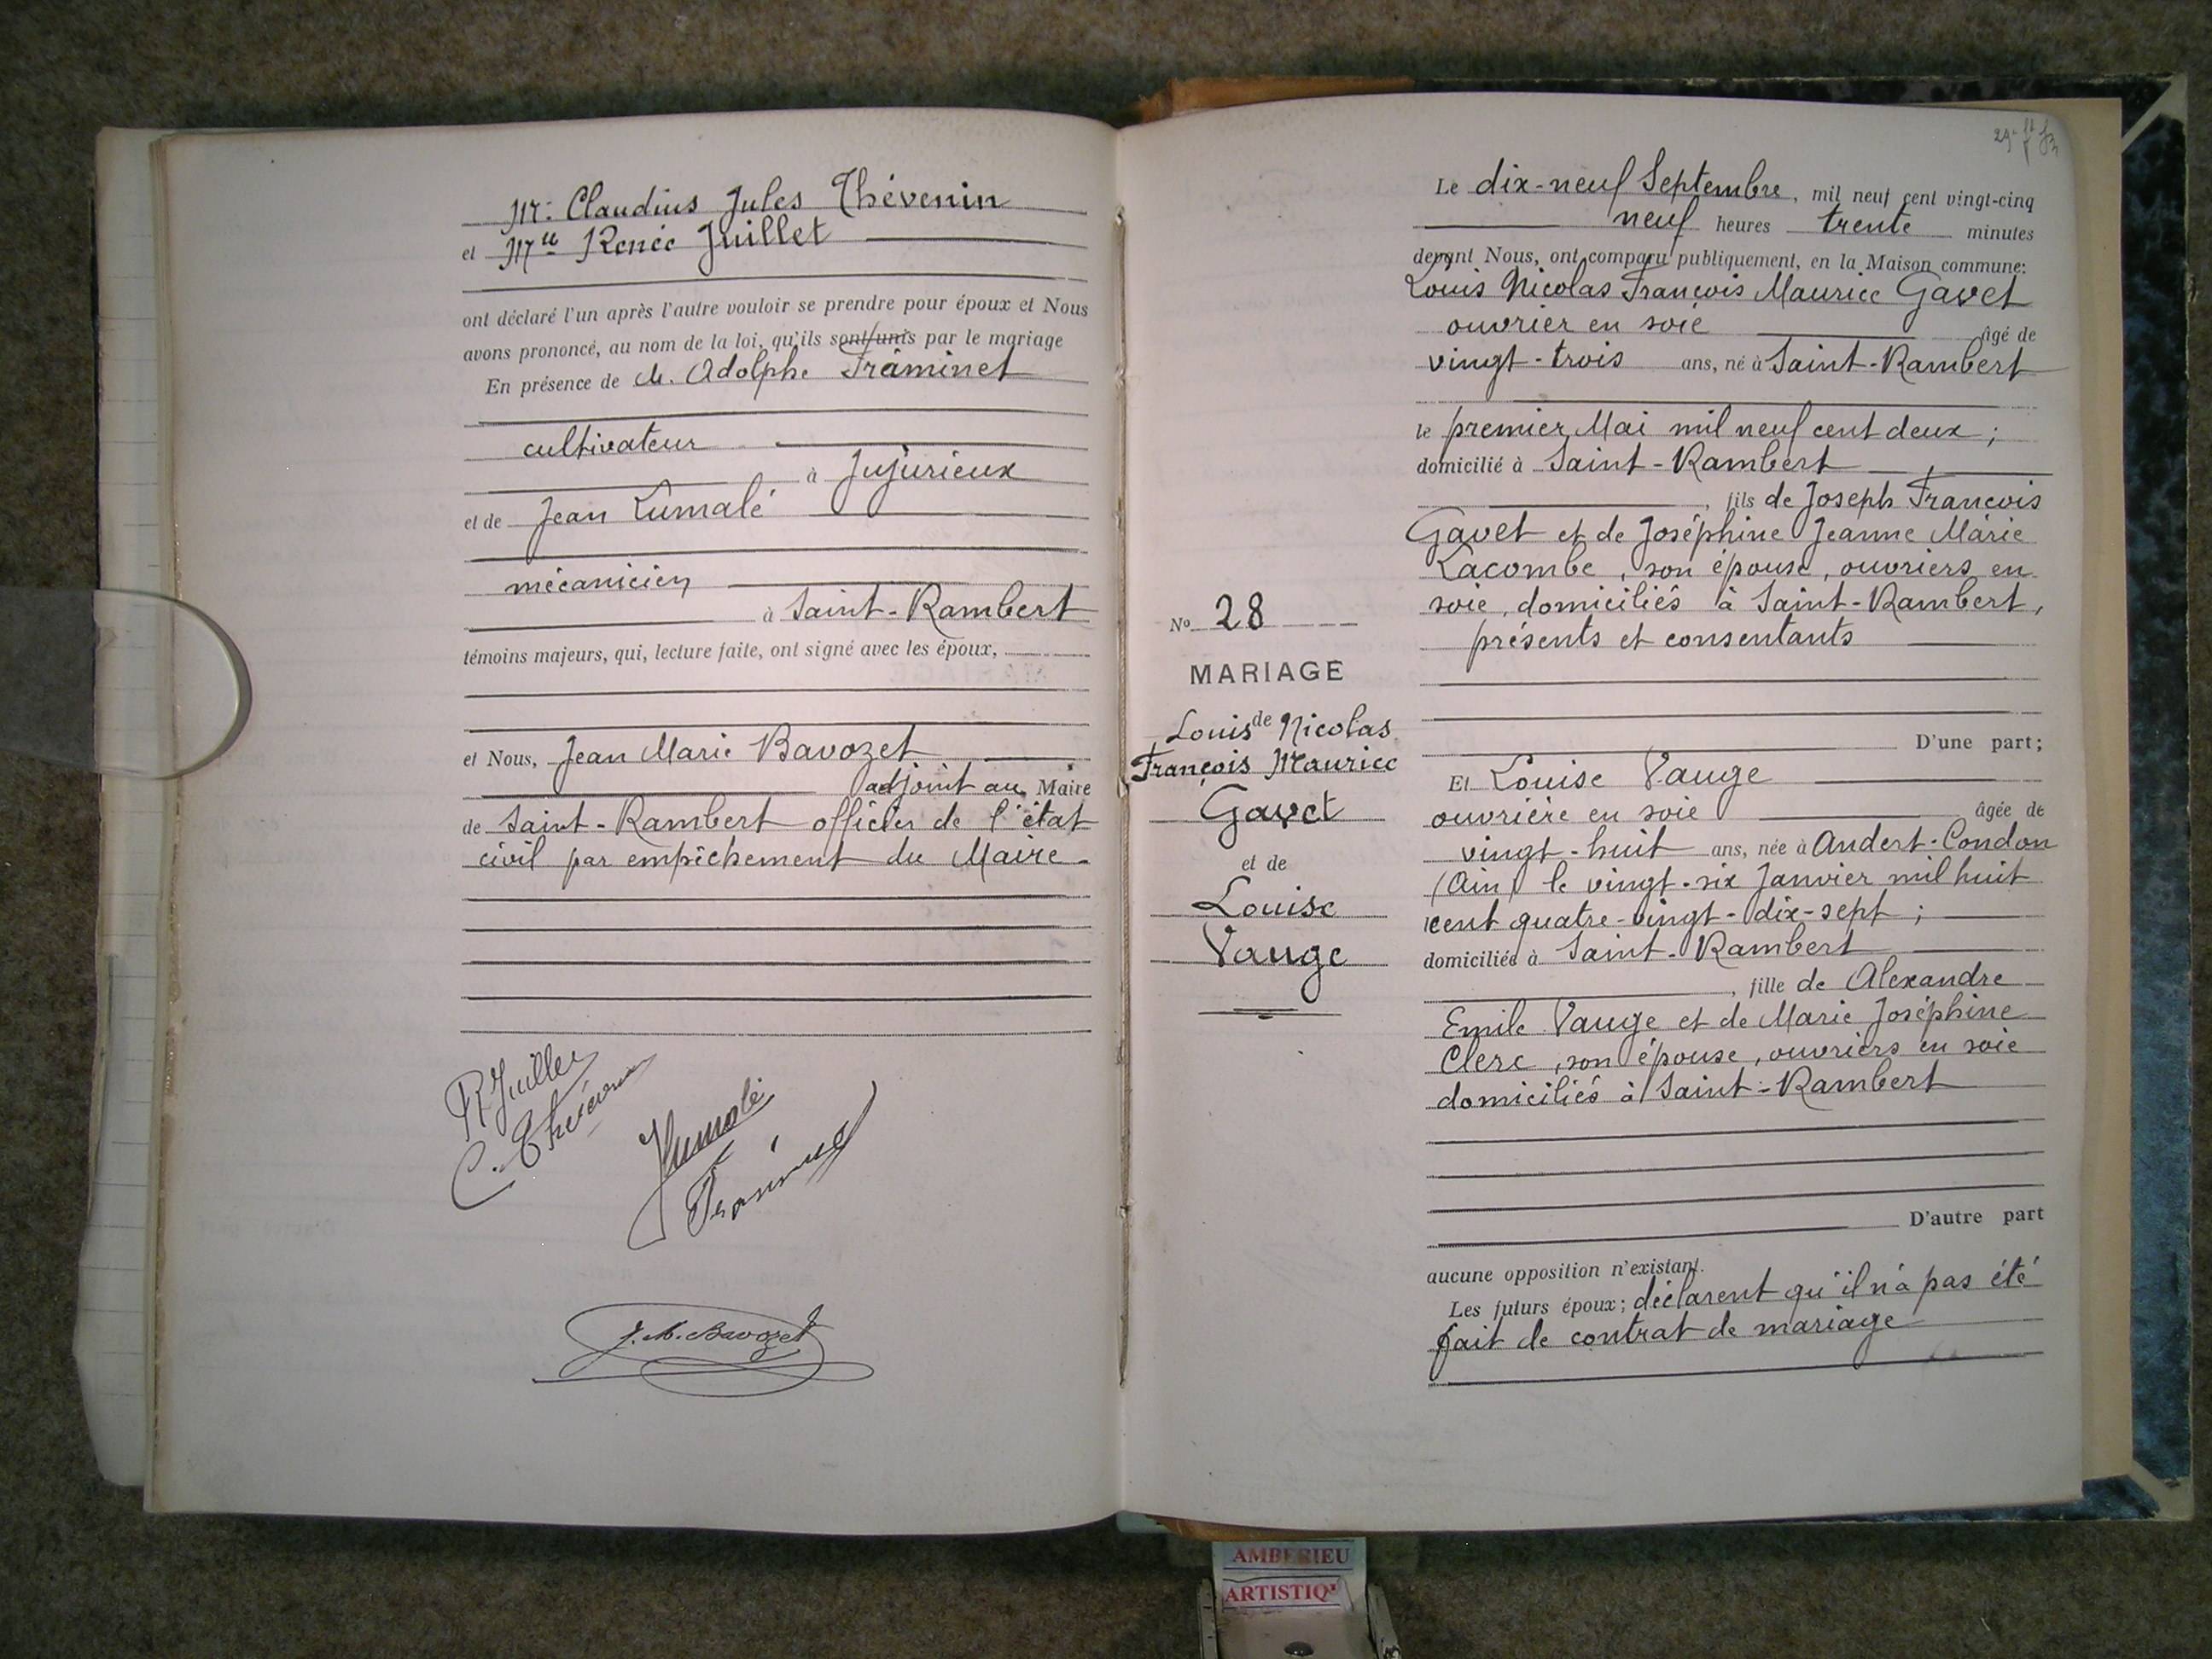 Mr. Claudius Jules Thévenin
et Mlle Renée Juillet
ont déclaré l'un après l'autre vouloir se prendre pour époux et Nous
avons prononcé, au nom de la loi, qu'ils sont unis par le mariage
En présence de M. Adolphe Framinet
cultivateur
à Jujurieux
et de Jean Lumalé
mécanicien
à Saint-Rambert
témoins majeurs, qui, lecture faite, ont signé avec les époux,
et Nous, Jean Marie Bavozet
adjoint au Maire
de Saint-Rambert officier de l'état
civil par empêchement du Maire.
R Juillet
C. Thévenin
J.M. Bavozet
No 28
MARIAGE
de
Louis Nicolas
François Maurice
Gavet
et de
Louise
Vauge
Le dix-neuf Septembre, mil neuf cent vingt-cinq
neuf heures trente minutes
devant Nous, ont comparu publiquement, en la Maison commune:
Louis Nicolas François Maurice Gavet
ouvrier en soie âgé de
vingt-trois ans, né à Saint-Rambert
le premier Mai mil neuf cent deux;
domicilié à Saint-Rambert,
, fils de Joseph François
Gavet et de Joséphine Jeanne Marie
Lacombe, son épouse, ouvriers en
soie, domiciliés à Saint-Rambert,
présents et consentants
D'une part;
Et Louise Vauge
ouvrière en soie âgée de
vingt-huit ans, née à Andert-Condon
(Ain) le vingt-six Janvier mil huit
cent quatre-vingt-dix-sept;
domiciliée à Saint-Rambert
, fille de Alexandre
Emile Vauge et de Marie Joséphine
Clerc, son épouse, ouvriers en soie
domiciliés à Saint-Rambert
D'autre part
aucune opposition n'existant.
Les futurs époux; déclarent qu'il n'a pas été
fait de contrat de mariage
AMBERIEU
ARTISTIQ